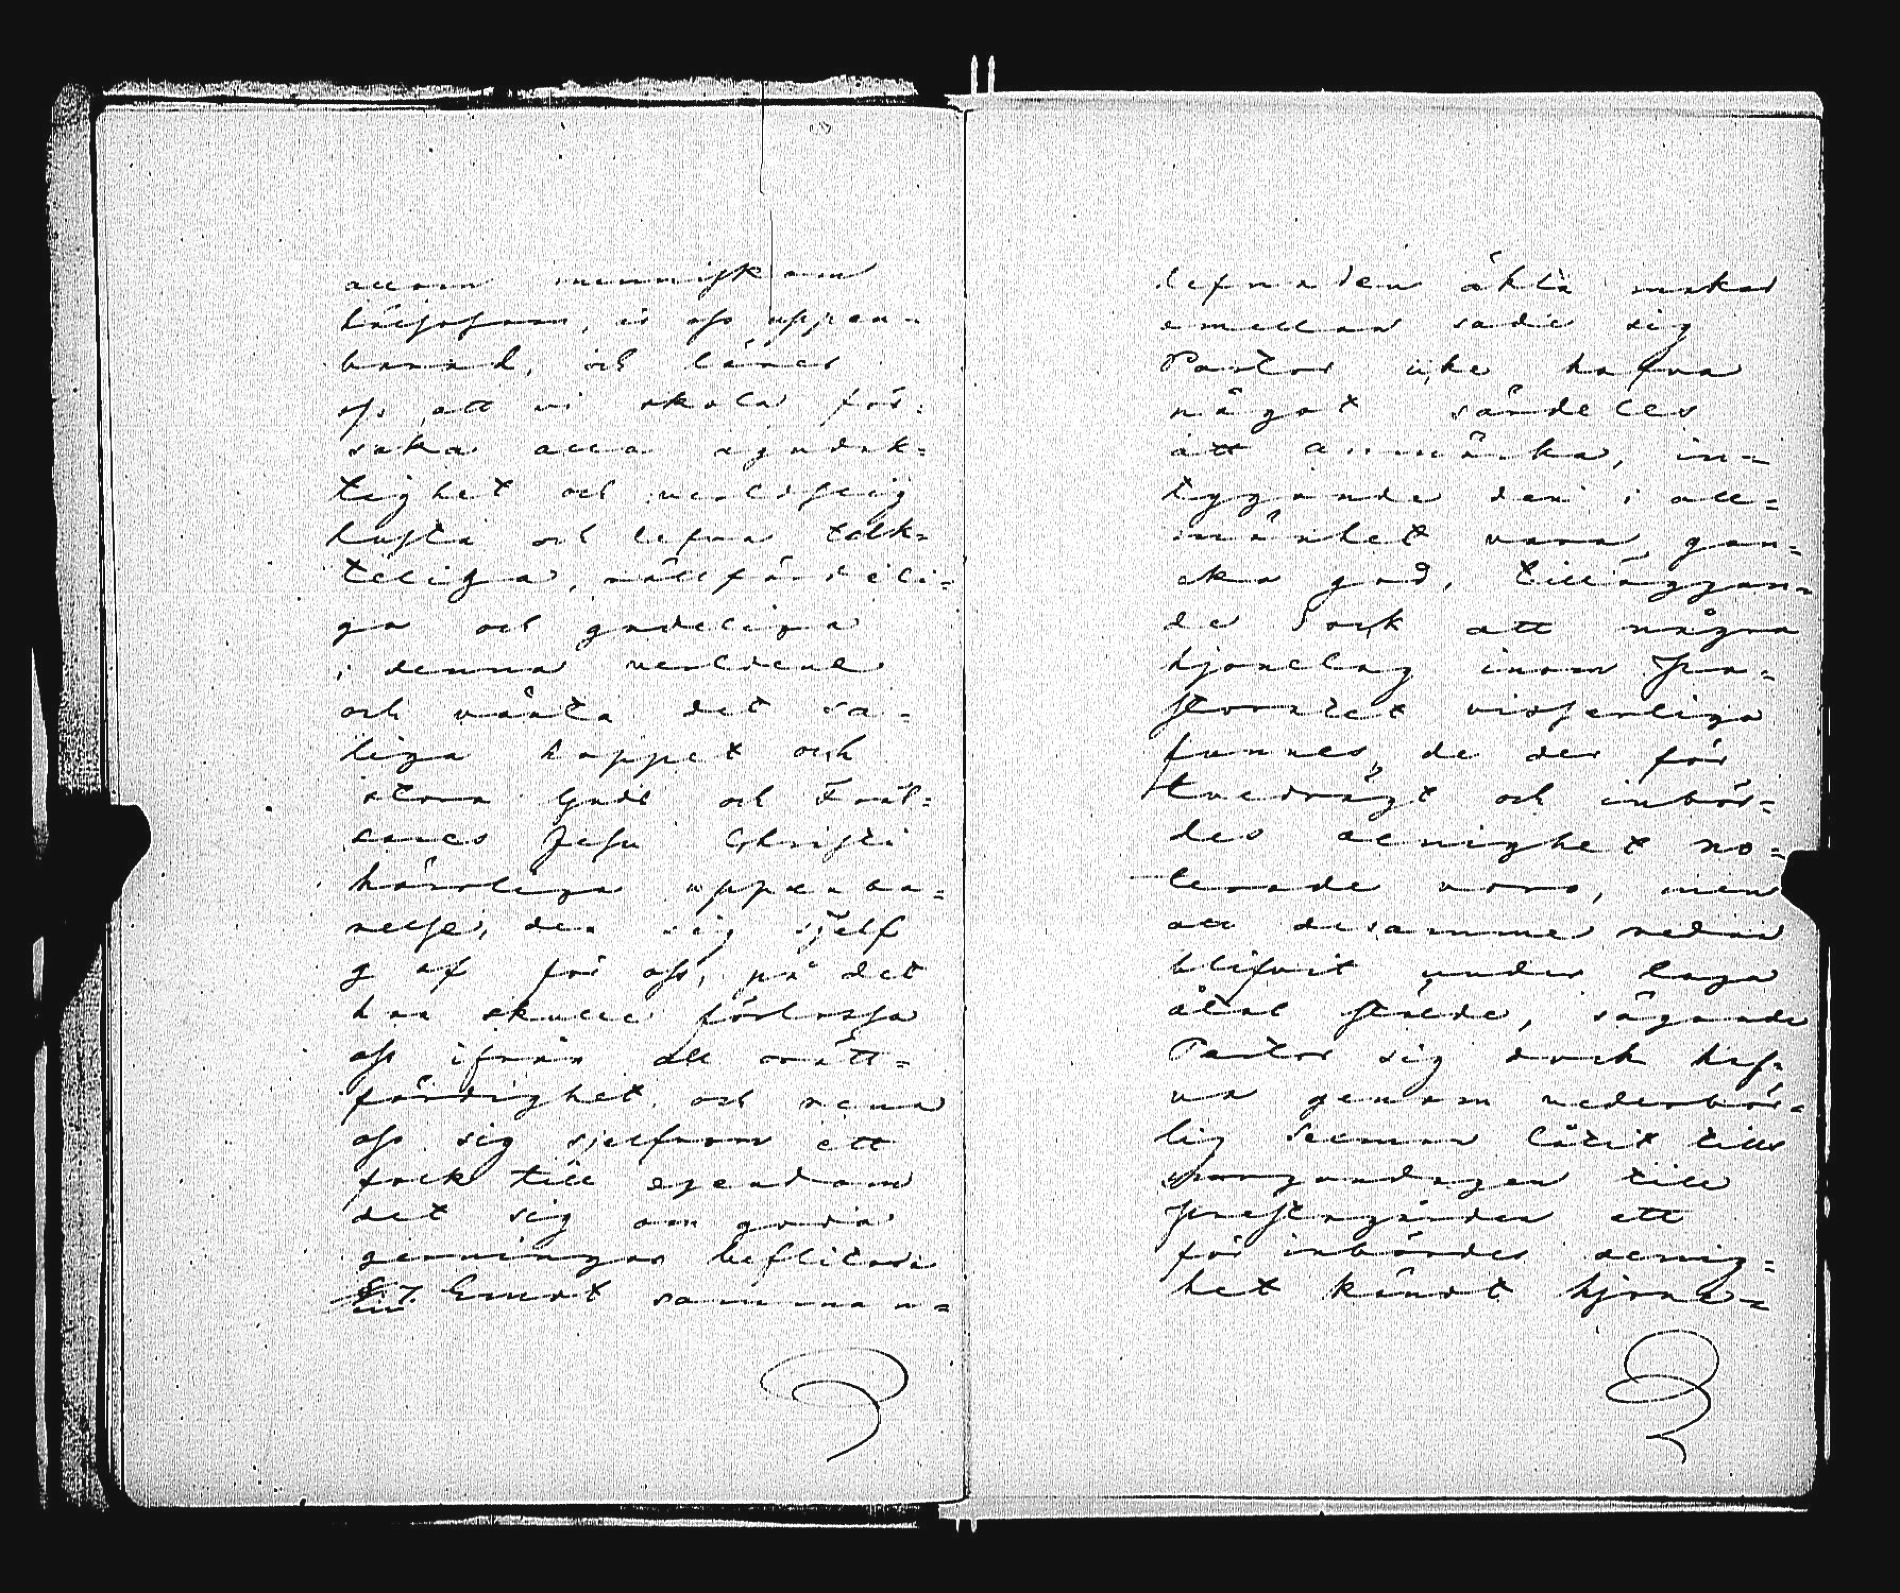 allom menniskiom
hälsosam, är oss uppen-
barad, och lärer
oss att vi skola för-
saka alla ogudak-
tighet och verldslig
lusta och lefva tükk-
teliga, rättfärdeli-
ga och gudeliga
i denna verldene
och vänta det sa-
liga hoppet och
stora Guds och Fräl-
sares Jesu Christi
härliga uppenba-
relse, den sig sjelf
gaf för oss, på det
han skulle förlossa
oss ifrån all orätt-
färdighet och rena
oss sig sjelfvom ett
folk till egendom
det sig om goda
gerningar beflitade
§. 7. Emot samman-
lefnaden ächta makar
emellan sade sig
Pastor icke hafva
något särdeles
att anmärka, in-
tygande den i all-
mänhet vara gan-
ska god, tilläggan-
de dock att några
hjonelag inom Pa-
storatet visserliga
funnes, de der för
tvedrägt och inbör-
des oenighet no-
terade voro, men
att desamme redan
blifvit under laga
åtal stälde, sägande
Pastor sig dock haf-
va genom vederbör-
lig Lecman låtit till
spargandagen till
prestagården ett
för inbördes oenig-
het kändt hjone-